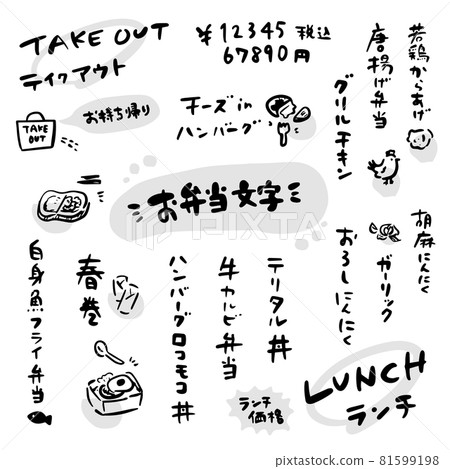 TAKE OUT
テイクアウト
¥12345 税込
67890円
TAKE
OUT
お持ち帰り
チーズin
ハンバーグ
若鶏からあげ
唐揚げ弁当
グリルチキン
お弁当文字
PIXTA
胡麻にんにく
ガーリック
おろしにんにく
テリタル丼
牛カルビ弁当
ハンバーグロコモコ丼
春巻
白身魚フライ弁当
ランチ
価格
LUNCH
ランチ
81599198